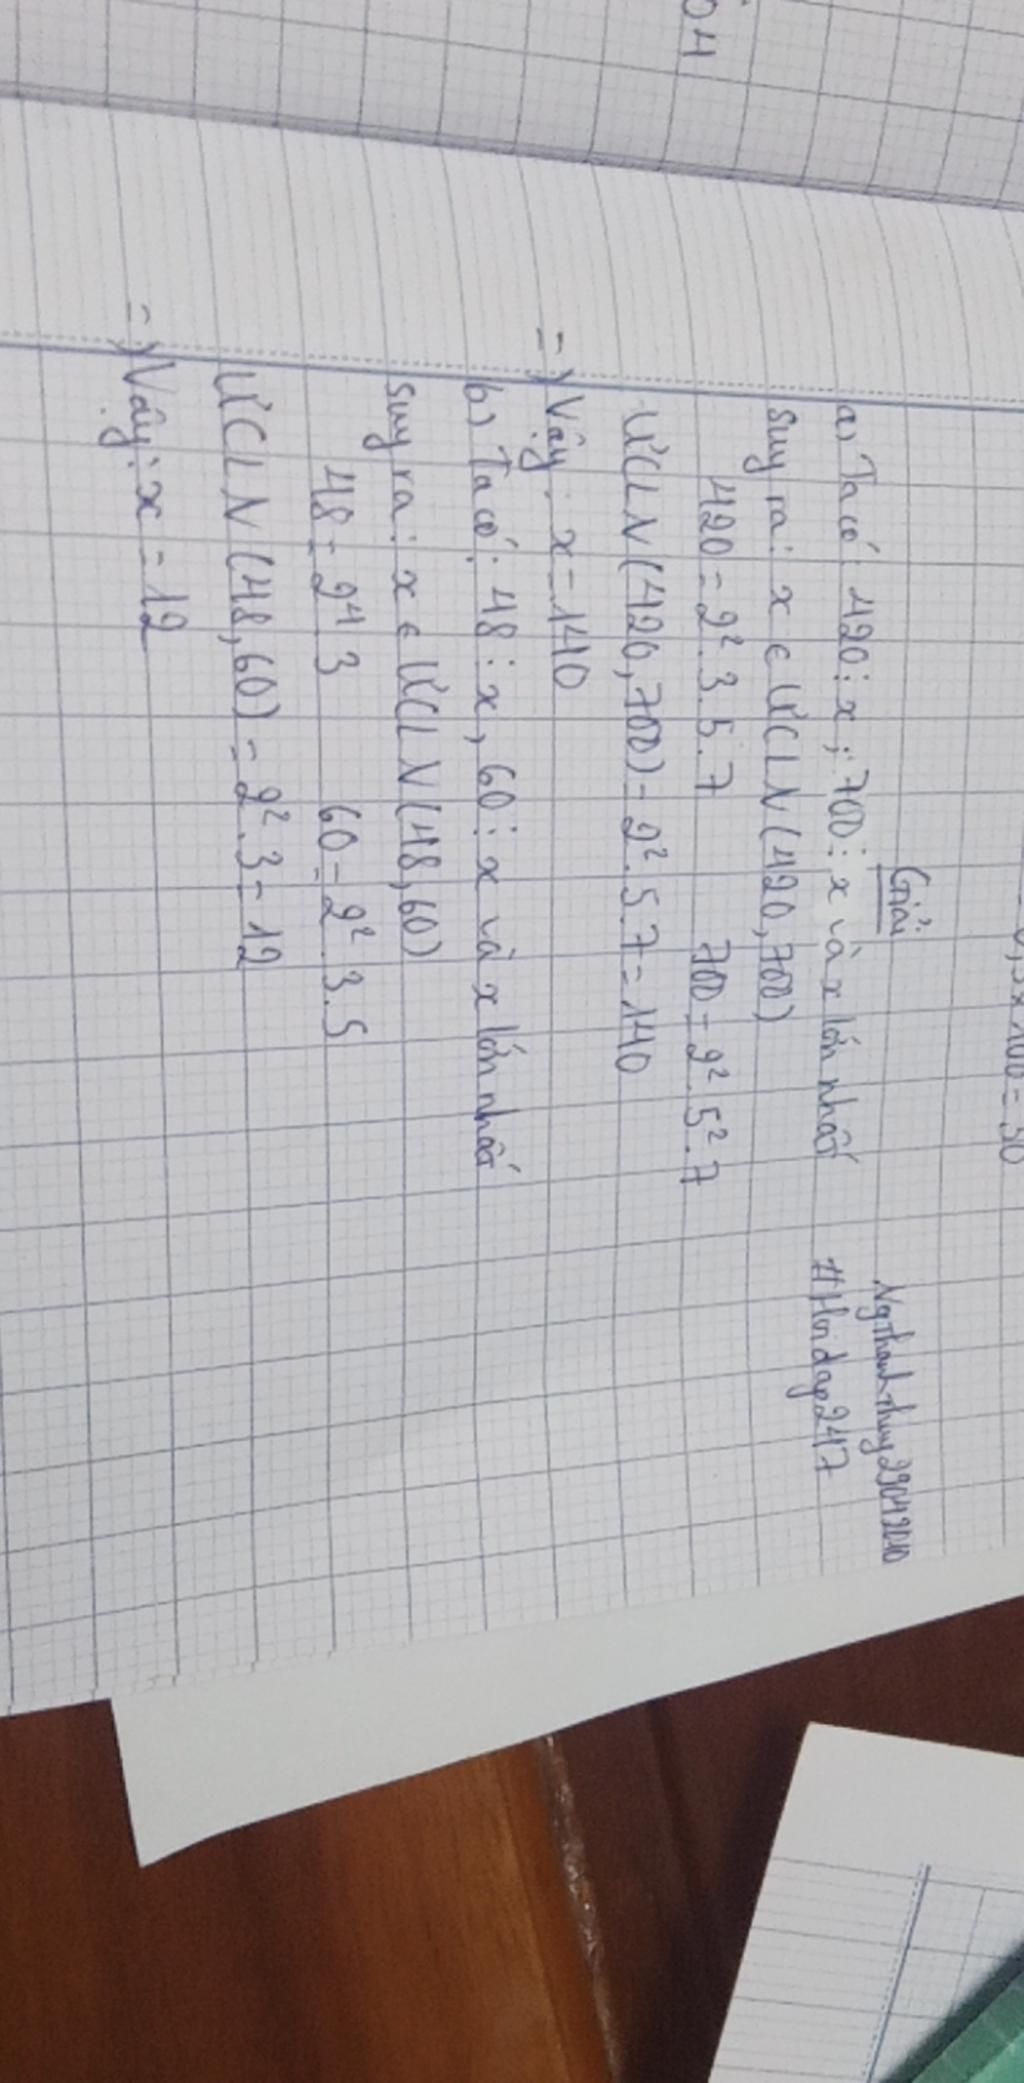 04
0,5 x 100 = 50
Giải
Ngthanhthuy29042010
#Hoidap247
a, Ta có: 420 ⋮ x ; 700 ⋮ x và x lớn nhất
Suy ra: x ∈ ƯCLN (420, 700)
420 = 2². 3. 5. 7 700 = 2². 5². 7
ƯCLN (420, 700) = 2². 5. 7 = 140
=) Vậy: x = 140
b, Ta có: 48 ⋮ x, 60 ⋮ x và x lớn nhất
Suy ra: x ∈ ƯCLN (48, 60)
48 = 2⁴ 3 60 = 2². 3. 5
ƯCLN (48, 60) = 2². 3 = 12
=) Vây: x = 12